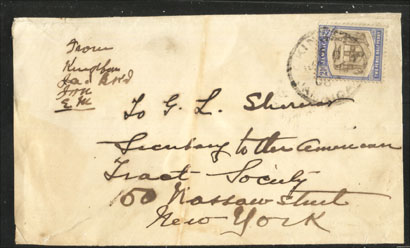 From
Kingston
Ja. B.W.I.
To G. L. Shearer
Secretary to the American
Tract Society
150 Nassau street
New York